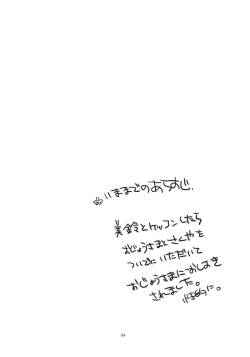 いままでのあらすじ.
美鈴とケッコンしたら
おじょうさまとさくやを
ついでにいただいて
おじょうさまにおしおき
されました。